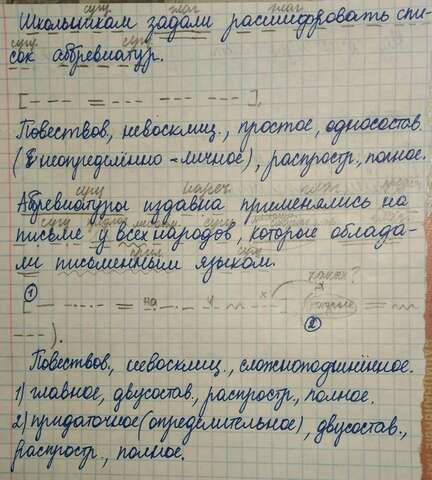 сущ глаг глаг
Школьникам задали расшифровать спи-
сущ сущ
сок аббревиатур.
[--- = --- --- ---].
Повествов, невосклиц., простое, односостав.
(неопределённо-личное), распростр., полное.
сущ нареч глаг
Аббревиатуры издавна применялись на
сущ сущ
письме у всех народов, которые облада-
прил сущ
ли письменным языком.
1 на у х каких?
2 (которые =
---).
Повествов., невосклиц., сложноподчинённое.
1) главное, двусостав., распростр., полное.
2) придаточное (определительное), двусостав.,
распростр., полное.